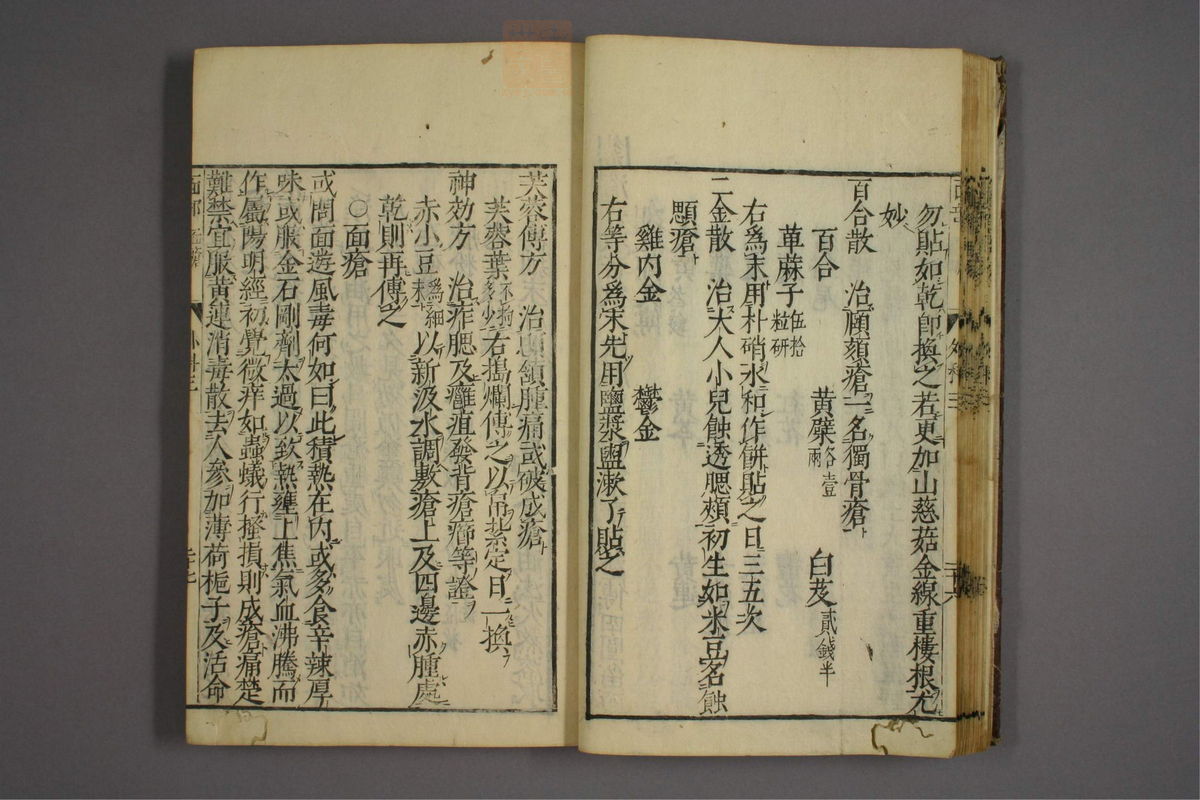 勿貼如乾即換之若更加山慈菇金線重樓根尤
妙
百合散　治頋頦瘡一名獨骨瘡
百合　黃檗各壹兩　白芨貳錢半
萆麻子伍拾粒研
右爲末用朴硝水和作餅貼之日三五次
二金散　治大人小兒蝕透腮頰初生如米豆名蝕
顋瘡
雞内金　鬱金
右等分爲末先用鹽漿盥漱了貼之
芙蓉傅方　治頷腫痛或破成瘡
芙蓉葉不拘多少右擣爛傅之以帛紮定日一換
神効方　治痄腮及癰疽發背瘡癤等證
赤小豆爲細末以新汲水調敷瘡上及四邊赤腫處
乾則再傅之
○面瘡
或問面遊風毒何如曰此積熱在内或多食辛辣厚
味或服金石剛劑太過以致熱壅上焦氣血沸騰而
作屬陽明經初覺微痒如蟲蟻行搔損則成瘡痛楚
難禁宜服黃連消毒散去人參加薄荷梔子及活命